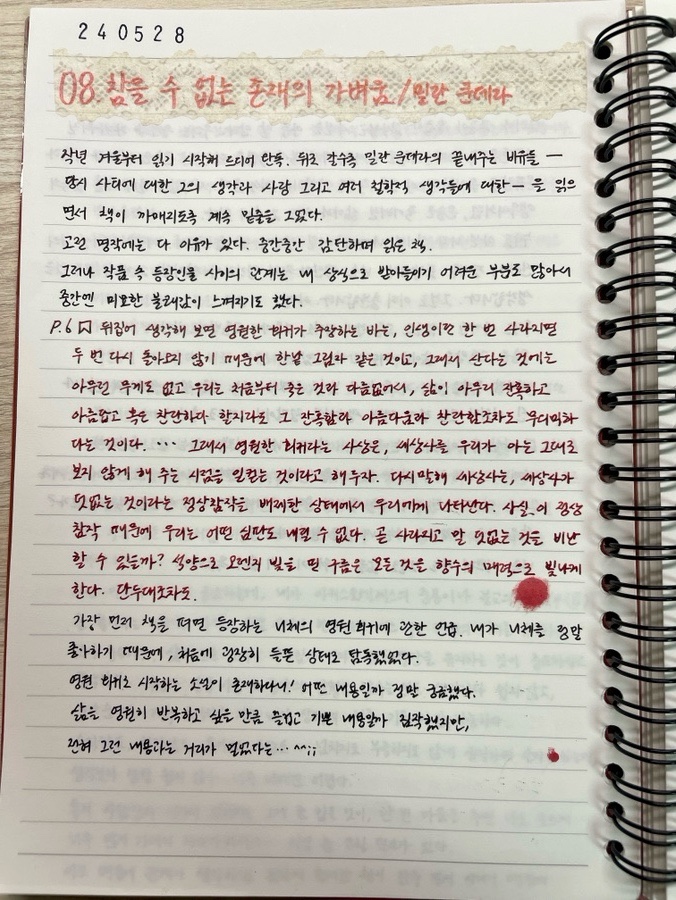 240528
08. 참을 수 없는 존재의 가벼움 / 밀란 쿤데라
작년 겨울부터 읽기 시작해 드디어 완독. 뒤로 갈수록 밀란 쿤데라의 끝내주는 비유들 —
당시 사회에 대한 그의 생각과 사랑 그리고 여러 철학적 생각들에 대한 — 을 읽으
면서 책이 까매지도록 계속 밑줄을 그었다.
고전 명작에는 다 이유가 있다. 중간중간 감탄하며 읽은 책.
그러나 작품 속 등장인물 사이의 관계는 내 상식으로 받아들이기 어려운 부분도 많아서
중간엔 미묘한 불쾌감이 느껴지기도 했다.
P.6 뒤집어 생각해 보면 영원한 회귀가 주장하는 바는, 인생이란 한 번 사라지면
두 번 다시 돌아오지 않기 때문에 한낱 그림자 같은 것이고, 그래서 산다는 것에는
아무런 무게도 없고 우리는 처음부터 죽은 것과 다름없어서, 삶이 아무리 잔혹하고
아름답고 혹은 찬란하다 할지라도 그 잔혹함과 아름다움과 찬란함조차도 무의미하
다는 것이다. … 그래서 영원한 회귀라는 사상은, 세상사를 우리가 아는 그대로
보지 않게 해 주는 시점을 일컫는 것이라고 해 두자. 다시 말해 세상사는, 세상사가
덧없는 것이라는 정상참작을 배제한 상태에서 우리에게 나타난다. 사실 이 정상
참작 때문에 우리는 어떤 심판도 내릴 수 없다. 곧 사라지고 말 덧없는 것을 비난
할 수 있을까? 석양으로 오렌지 빛을 띤 구름은 모든 것을 향수의 매력으로 빛나게
한다. 단두대조차도.
가장 먼저 책을 펴면 등장하는 니체의 영원 회귀에 관한 언급. 내가 니체를 정말
좋아하기 때문에, 처음에 굉장히 들뜬 상태로 탐독했었다.
영원 회귀로 시작하는 소설이 존재하다니! 어떤 내용일까 정말 궁금했다.
삶을 영원히 반복하고 싶을 만큼 즐겁고 기쁜 내용일까 짐작했지만,
전혀 그런 내용과는 거리가 멀었다는… ^^;;